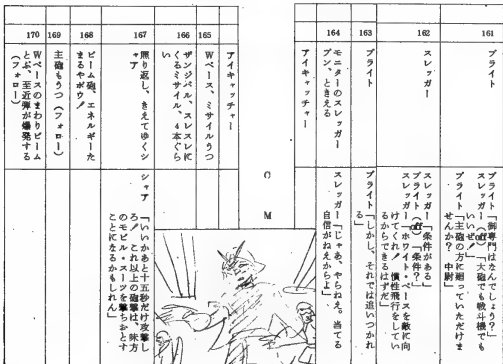 161
ブライト
ブライト「御専門はなんでしょう?」
スレッガー(off)「大砲でも戦斗機でも
いいぜ!」
ブライト「主砲の方に廻っていただけま
せんか? 中尉」
162
スレッガー
スレッガー「条件がある」
ブライト(off)「条件?」
スレッガー「ホワイト・ベースを敵に向
けてくれ! 慣性飛行をしてい
るからできるはずだ」
163
ブライト
ブライト「しかし、それでは追いつかれ
る」
164
モニターのスレッガー
プン、ときえる
スレッガー「じゃあ、やらねえ。当てる
自信がねえからよ」
アイキャッチャー
C M
アイキャッチャー
165
Wベース、ミサイルうつ
166
ザンジバル、スレスレに
くるミサイル、4本ぐら
い
167
照り返し、きえてゆくシ
ャア
シャア「いいかあと十五秒だけ攻撃し
ろ! これ以上の砲撃は、味方
のモビル・スーツを撃ちおとす
ことになるかもしれん」
168
ビーム砲、エネルギーた
まるやボウ!
169
主砲もうつ(フォロー)
170
Wベースのまわりビーム
とぶ、至近弾が爆発する
(フォロー)